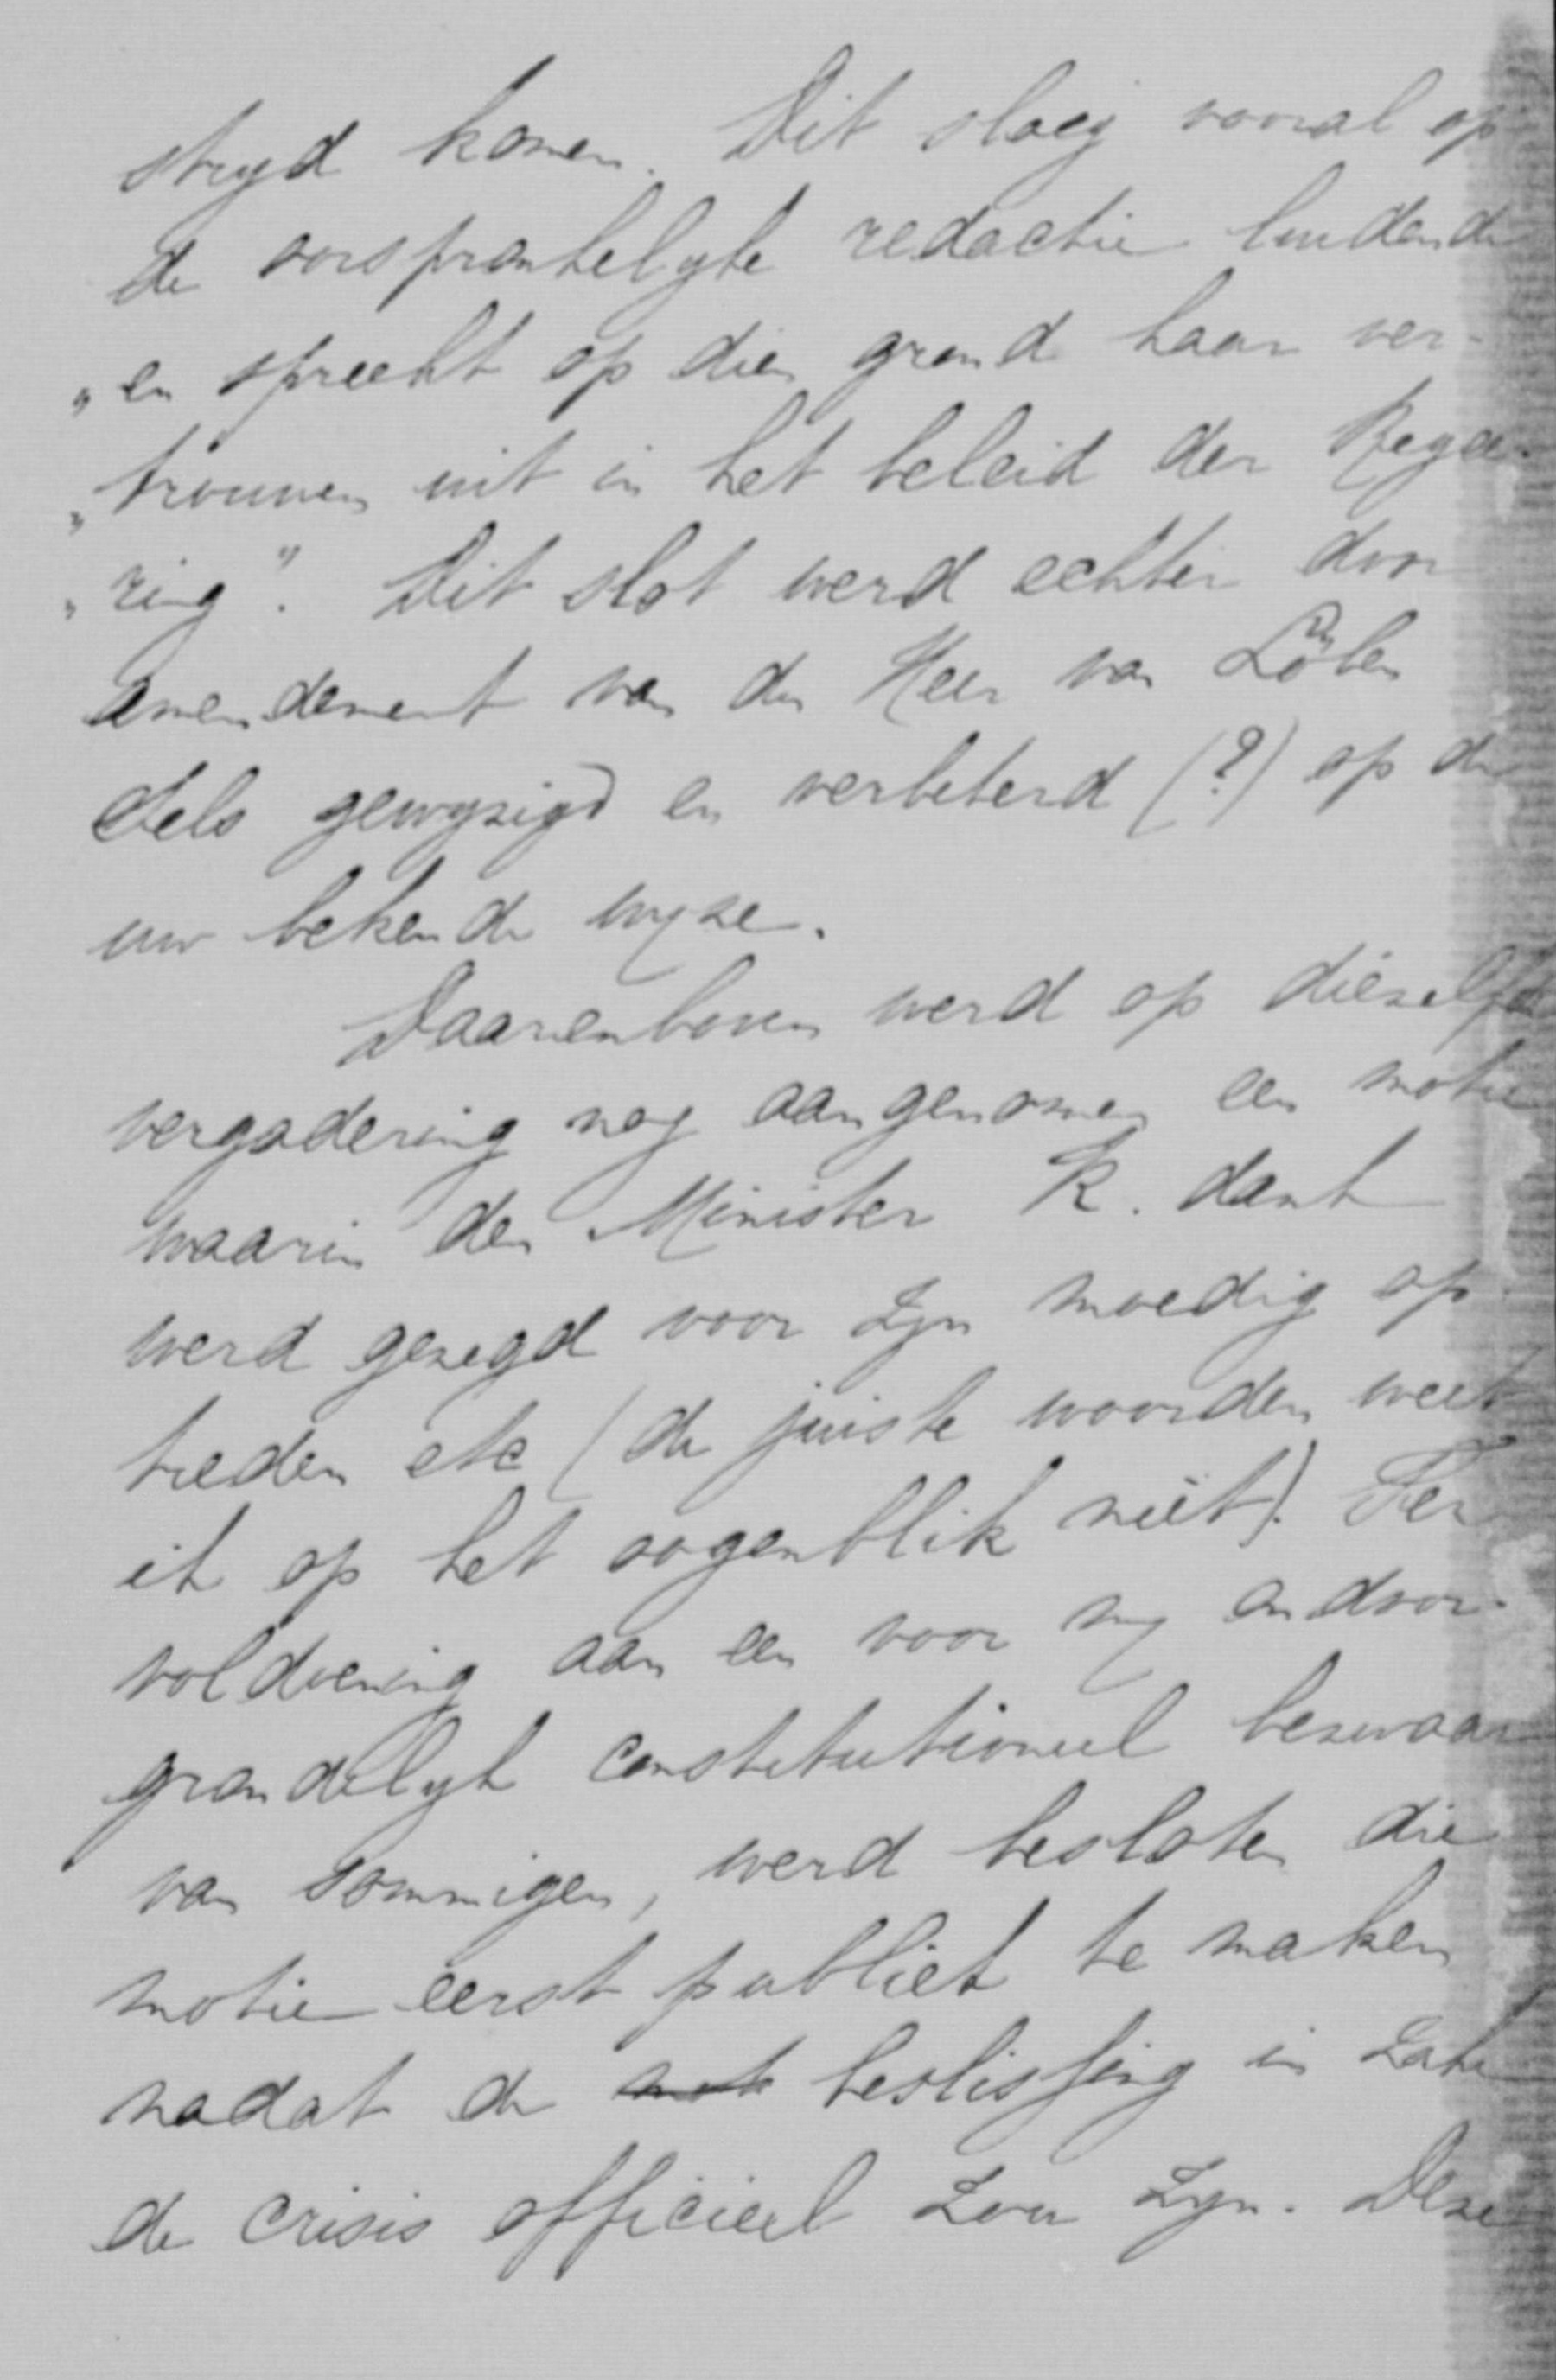 stryd komen. Dit sloeg vooral op
de oorspronkelyke redactie luidende
„en spreekt op dien grond haar ver-
„trouwen uit in het beleid der Regee-
„ring". Dit slot werd echter door
amendement van den Heer van Löben
Sels gewyzigd en verbeterd (?) op de
uw bekende wyze.
Daarenboven werd op diezelfde
vergadering nog aangenomen een motie
waarin den Minister K. dank
werd gezegd voor zyn moedig op
treden etc (de juiste woorden weet
ik op het oogenblik niet). Ter
voldoening aan een voor my ondoor-
grondelyk constitutioneel bezwaar
van sommigen, werd besloten die
motie eerst publiek te maken
nadat de mot beslissing in zake
de crisis officieel zou zyn. Deze